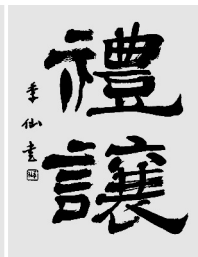 禮讓
季仙書